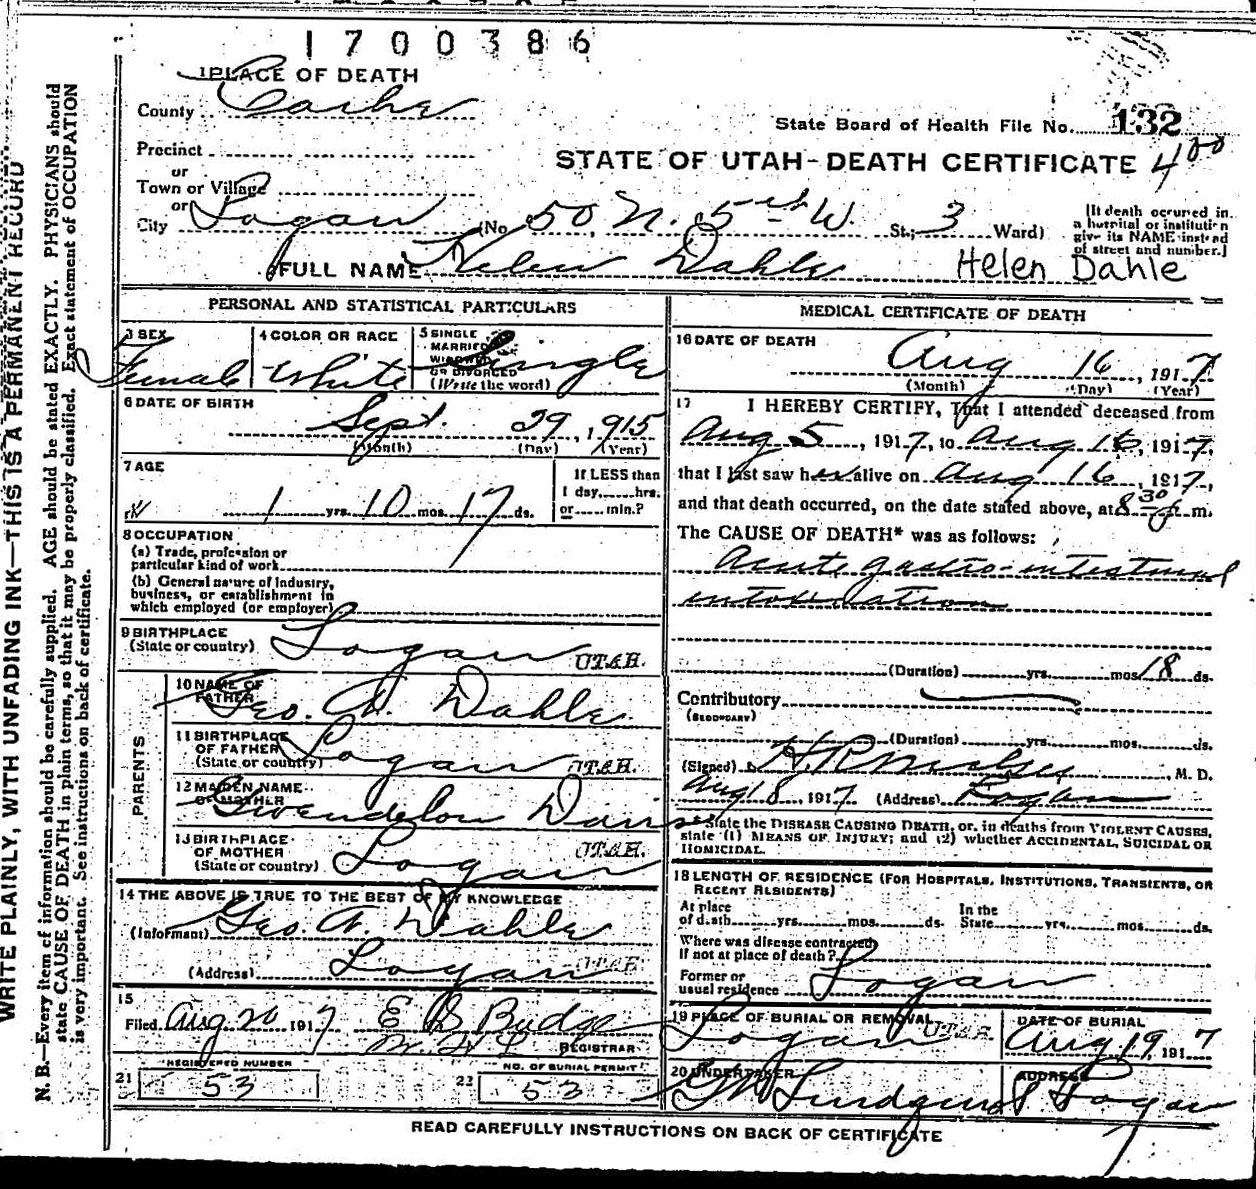 1700386
1 PLACE OF DEATH
County Cache
State Board of Health File No. 132
Precinct
or
STATE OF UTAH-DEATH CERTIFICATE 400
Town or Village
or
City Logan (No 50, N. 5th W. St.; 3 Ward)
[If death occurred in a hospital or institution give its NAME instead of street and number.]
FULL NAME Helen Dahle Helen Dahle
PERSONAL AND STATISTICAL PARTICULARS
3 SEX Female
4 COLOR OR RACE White
5 SINGLE MARRIED WIDOWED OR DIVORCED (Write the word) Single
6 DATE OF BIRTH
Sept. 29, 1915
(Month) (Day) (Year)
7 AGE
1 yrs. 10 mos. 17 ds.
If LESS than 1 day, hrs. or min.?
8 OCCUPATION
(a) Trade, profession or particular kind of work
(b) General nature of Industry, business, or establishment in which employed (or employer)
9 BIRTHPLACE
(State or country) Logan UTAH.
PARENTS
10 NAME OF FATHER Geo. A. Dahle
11 BIRTHPLACE OF FATHER (State or country) Logan UTAH.
12 MAIDEN NAME OF MOTHER Gwendelon Davis
13 BIRTHPLACE OF MOTHER (State or country) Logan UTAH.
14 THE ABOVE IS TRUE TO THE BEST OF MY KNOWLEDGE
(Informant) Geo. A. Dahle
(Address) Logan UTAH
15
Filed Aug 20 1917 E S Budge
REGISTRAR
REGISTERED NUMBER
21 53
NO. OF BURIAL PERMIT
22 53
MEDICAL CERTIFICATE OF DEATH
16 DATE OF DEATH
Aug 16, 1917
(Month) (Day) (Year)
17 I HEREBY CERTIFY, That I attended deceased from
Aug 5, 1917, to Aug 16, 1917,
that I last saw her alive on Aug 16, 1917,
and that death occurred, on the date stated above, at 8 30 p. m.
The CAUSE OF DEATH* was as follows:
Acute gastro-intestinal
intoxication
(Duration) yrs. mos. 18 ds.
Contributory
(SECONDARY)
(Duration) yrs. mos. ds.
(Signed) M. D.
Aug 18, 1917. (Address) Logan
*State the DISEASE CAUSING DEATH, or, in deaths from VIOLENT CAUSES,
state (1) MEANS OF INJURY; and (2) whether ACCIDENTAL, SUICIDAL OR
HOMICIDAL.
18 LENGTH OF RESIDENCE (FOR HOSPITALS, INSTITUTIONS, TRANSIENTS, OR
RECENT RESIDENTS)
At place of death yrs. mos. ds. In the State yrs. mos. ds.
Where was disease contracted
If not at place of death?
Former or usual residence Logan
19 PLACE OF BURIAL OR REMOVAL
Logan UTAH
DATE OF BURIAL
Aug 19, 1917
20 UNDERTAKER
ADDRESS
Logan
READ CAREFULLY INSTRUCTIONS ON BACK OF CERTIFICATE
WRITE PLAINLY, WITH UNFADING INK—THIS IS A PERMANENT RECORD
N. B.—Every item of information should be carefully supplied. AGE should be stated EXACTLY. PHYSICIANS should
state CAUSE OF DEATH in plain terms, so that it may be properly classified. Exact statement of OCCUPATION
is very important. See instructions on back of certificate.